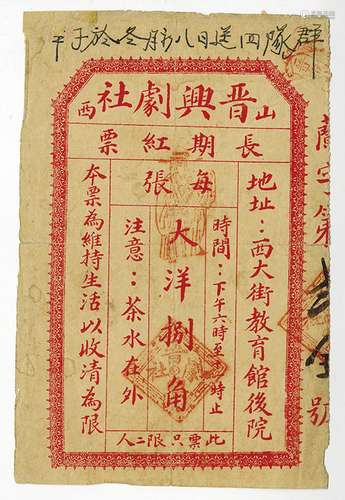 群隊四送日八
山西晋興劇社
長期紅票
地址：西大街教育館後院
時間：下午六時至 時止
每張
大洋捌角
注意：茶水在外
本票為維持生活以收清為限
此票只限二人
號